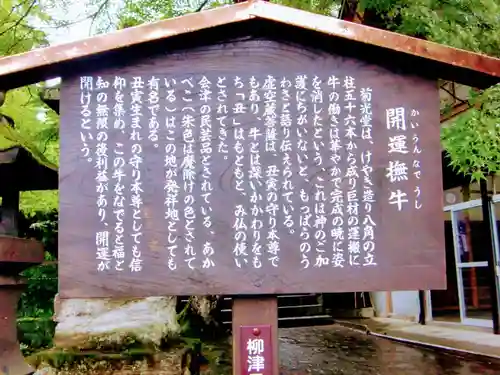 かいうんなでうし
開運撫牛
菊光堂は、けやき造り八角の立
柱五十六本から成り巨材の運搬に
牛の働きは華やかで完成の暁に姿
を消したという、これは神のご加
護にちがいないと、もっぱらのう
わさと語り伝えられている。
虚空蔵菩薩は、丑寅の守本尊で
もあり、牛とは深いかかわりをも
ち「丑」はもともと、み仏の使い
とされてきた。
会津の民芸品とされている、あか
べこ(朱色は魔除けの色とされて
いる)はこの地が発祥地としても
有名である。
丑寅生まれの守り本尊としても信
仰を集め、この牛をなでると福と
知の無限の後利益があり、開運が
開けるという。
柳津